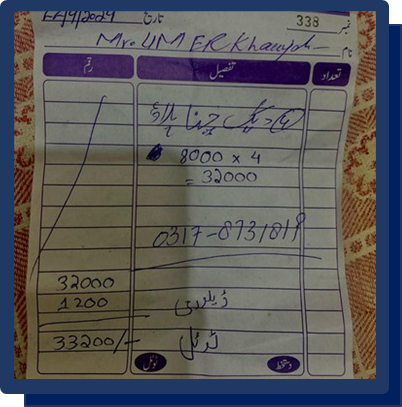 نمبر 338 تاریخ /9/2024
نام Mr. UMER
تعداد تفصیل رقم
④ دیگ چنا پلاؤ
8000 x 4
= 32000
0317-8731819
32000
ڈیلیوری 1200
ٹوٹل 33200/-
دستخط ٹوٹل